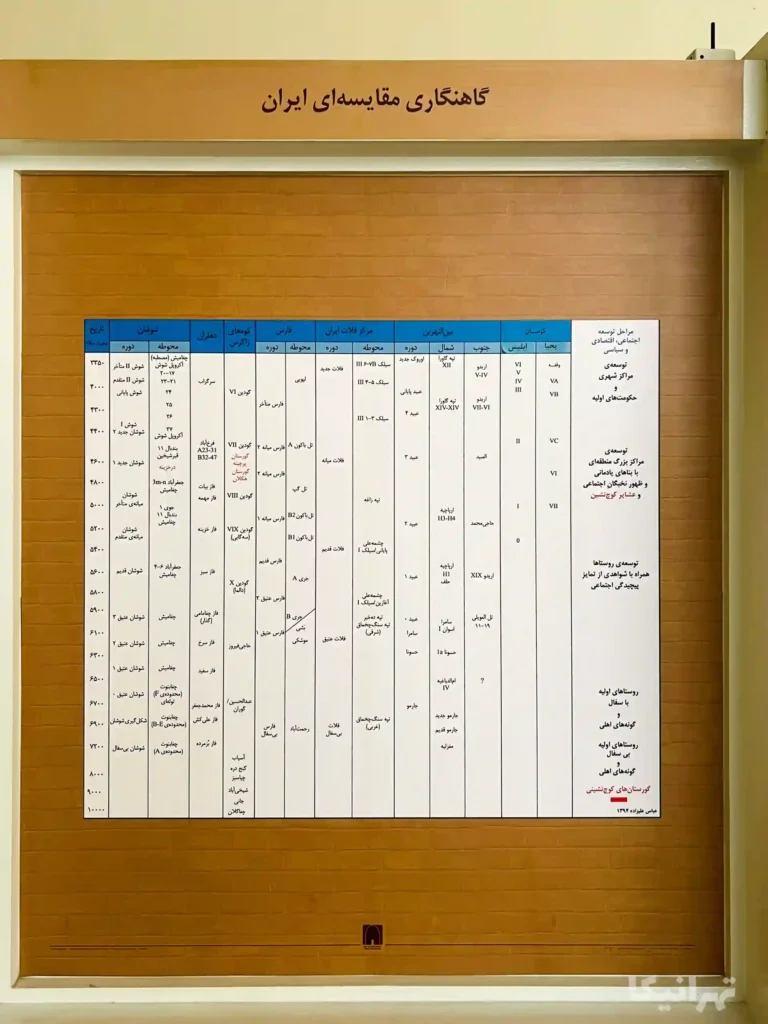 گاهنگاری مقایسه‌ای ایران
مراحل توسعه
اجتماعی، اقتصادی
و سیاسی
کرمان
بین‌النهرین
مرکز فلات ایران
فارس
کوه‌های
زاگرس
دهلران
شوشان
تاریخ
یحیا
ابلیس
جنوب
شمال
دوره
محوطه
دوره
محوطه
دوره
محوطه
دوره
توسعه‌ی
مراکز شهری
و
حکومت‌های اولیه
توسعه‌ی
مراکز بزرگ منطقه‌ای
با بناهای یادمانی
و ظهور نخبگان اجتماعی
و عشایر کوچ‌نشین
توسعه‌ی روستاها
همراه با شواهدی از تمایز
پیچیدگی اجتماعی
روستاهای اولیه
با سفال
و
گونه‌های اهلی
روستاهای اولیه
بی سفال
و
گونه‌های اهلی
گورستان‌های کوچ‌نشینی
عباس علیزاده ۱۳۹۴
وقفه
VA
VB
VC
VI
VII
VI
V
IV
III
II
I
0
اریدو
V-IV
اریدو
VII-VI
العبید
حاجی‌محمد
اریدو XIX
تل العویلی
۱۱-۱۹
؟
تپه گاورا
XII
تپه گاورا
XIV-XIV
ارپاچیه
H3-H4
ارپاچیه
H1
حلف
سامرا
حسونا Ia
ام‌الدباغیه
IV
جارمو جدید
جارمو قدیم
اوروک جدید
عبید پایانی
عبید ۴
عبید ۳
عبید ۲
عبید ۱
عبید ۰
سامرا
حسونا
جارمو
سیلک III ۶-۷B
سیلک III ۴-۵
سیلک III ۱-۳
تپه زاغه
چشمه‌علی
پایانی/سیلک I
چشمه‌علی
آغازین/سیلک I
تپه سنگ‌چخماق
(شرقی)
تپه سنگ‌چخماق
(غربی)
فلات جدید
فلات میانه
فلات قدیم
فلات عتیق
فلات
بی‌سفال
لپویی
تل باکون A
تل گپ
تل‌باکون B2
تل‌باکون B1
جری A
جری B
بشی
موشکی
رحمت‌آباد
فارس متأخر
فارس میانه ۲
فارس میانه ۲
فارس میانه ۱
فارس قدیم
فارس عتیق ۲
فارس عتیق ۱
فارس
بی‌سفال
گودین VI
گودین VII
گورستان
پرچینه
گورستان
هکلان
گودین VIII
گودین XIX
(سه‌گابی)
گودین X
(دالما)
حاجی‌فیروز
عبدالحسین/
گوران
آسیاب
گنج دره
چیاسبز
شیخی‌آباد
جانی
چماکلان
سرگراب
فرخ‌آباد
A23-31
B32-47
فاز بیات
فاز مهمه
فاز خزینه
فاز سبز
فاز چغامامی
(گذار)
فاز سرخ
فاز سفید
فاز محمدجعفر
فاز علی‌کش
فاز بُزمرده
چغامیش (مصطبه)
آکروپل شوش
۱۷-۲۰
۲۱-۲۳
۲۴
۲۵
۲۶
۲۷
آکروپل شوش
بندبال ۱۱
قبرشیخین
درخزینه
جعفرآباد 3m-n
چغامیش
جوی ۱
بندبال ۱۱
چغامیش
جعفرآباد ۴-۶
چغامیش
چغامیش
چغامیش
چغامیش
چغابنوت
(محدوده‌ی F)
توله‌ای
چغابنوت
(محدوده‌ی B-E)
چغابنوت
(محدوده‌ی A)
شوش II متأخر
شوش II متقدم
شوش پایانی
شوش I
شوشان جدید ۲
شوشان جدید ۱
شوشان
میانه‌ی متأخر
شوشان
میانه‌ی متقدم
شوشان قدیم
شوشان عتیق ۳
شوشان عتیق ۲
شوشان عتیق ۱
شوشان عتیق ۰
شکل‌گیری شوشان
شوشان بی‌سفال
۳۳۵۰
۴۰۰۰
۴۳۰۰
۴۴۰۰
۴۶۰۰
۴۸۰۰
۵۰۰۰
۵۲۰۰
۵۴۰۰
۵۶۰۰
۵۸۰۰
۵۹۰۰
۶۱۰۰
۶۳۰۰
۶۵۰۰
۶۷۰۰
۶۹۰۰
۷۲۰۰
۸۰۰۰
۹۰۰۰
۱۰۰۰۰
تهرانیکا